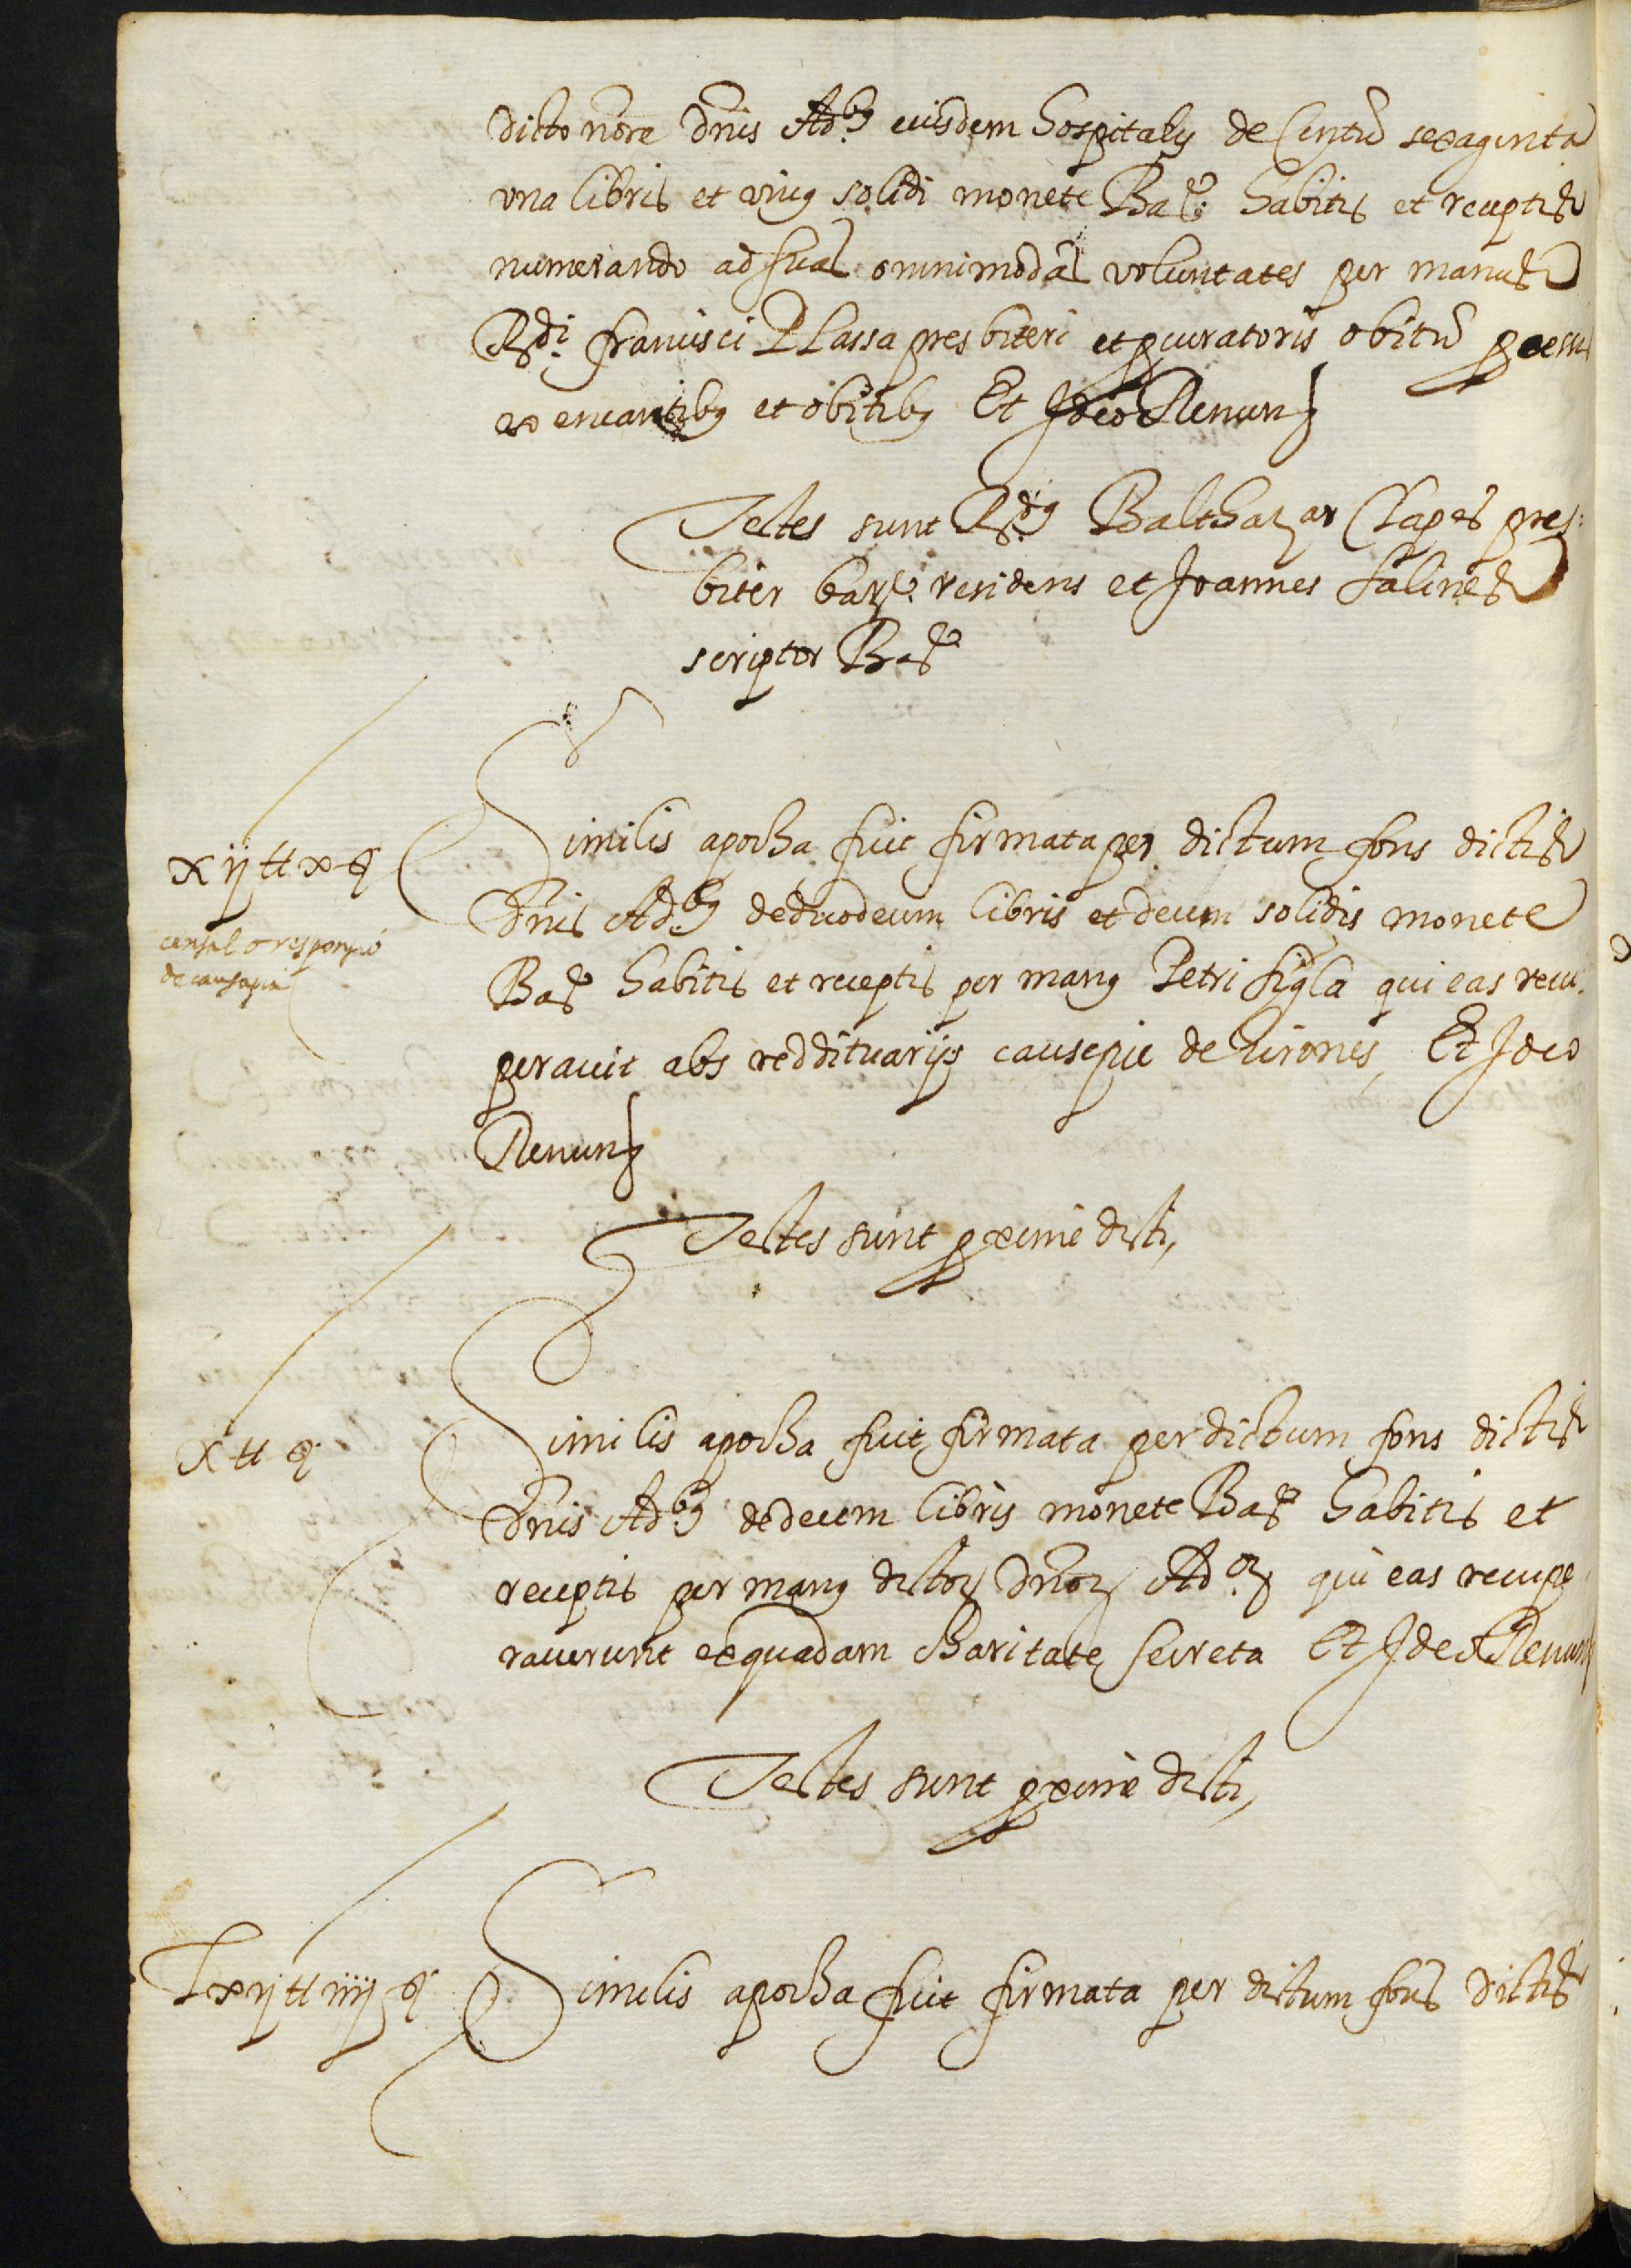 dicto nõre Dñis Ad.bꝫ eiusdem Hospitalis de Centũ sexaginta
una libris et uniꝯ solidi monete Barᵉ. habitis et receptis
numerando ad suas omnimodas voluntates per manus
Rdi. francisci Plassa presbiteri et ꝓcuratoris obitũ
et obitibꝫ Et Ideo Renunꝫ
Testes sunt Rdꝯ Balthazar Clapes pres:
biter barᵉ. residens et Joannes Salines
scriptor Barᵉ
xij ₶ x ẜ
censal o responsió
de causapia
Similis apocha fuit firmata per dictum fons dictis
Dñis Ad.bꝫ de duodecim libris et decem solidis monete
Barᵉ habitis et receptis per manꝯ Petri Sigla qui eas recu.
peravit abs reddituarijs causepie de Girones, Et Ideo
Renunꝫ
Testes sunt ꝓxime dicti,
x ₶ ẜ
Similis apocha fuit firmata per dictum fons dictis
Dñis Ad.bꝫ de decem libris monete Barᵉ habitis et
receptis per manꝯ dictoꝝ Dñoꝝ Ad.oꝝ qui eas recupe
raverunt ex quadam Charitate secreta Et Ideo Renunꝫ
Testes sunt ꝓxime dicti,
Lxij ₶ iiij ẜ
Similis apocha fuit firmata per dictum fons dictis